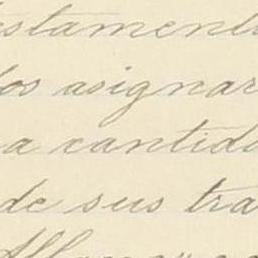 estamento
los asignar
a cantida
de sus tra